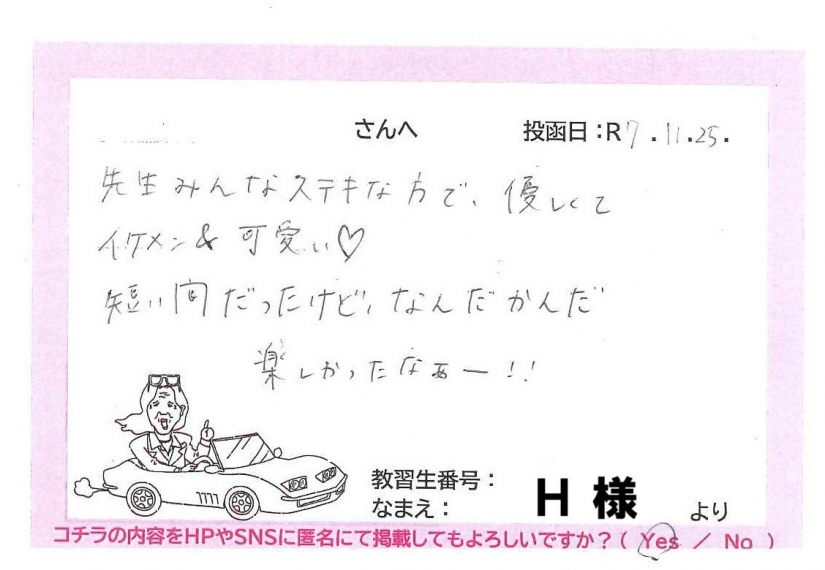 さんへ 投函日：R7.11.25.
先生みんなステキな方で、優しくて
イケメン&可愛い♡
短い間だったけど、なんだかんだ
楽しかったなぁー!!
教習生番号：
なまえ： H 様 より
コチラの内容をHPやSNSに匿名にて掲載してもよろしいですか？( Yes / No )